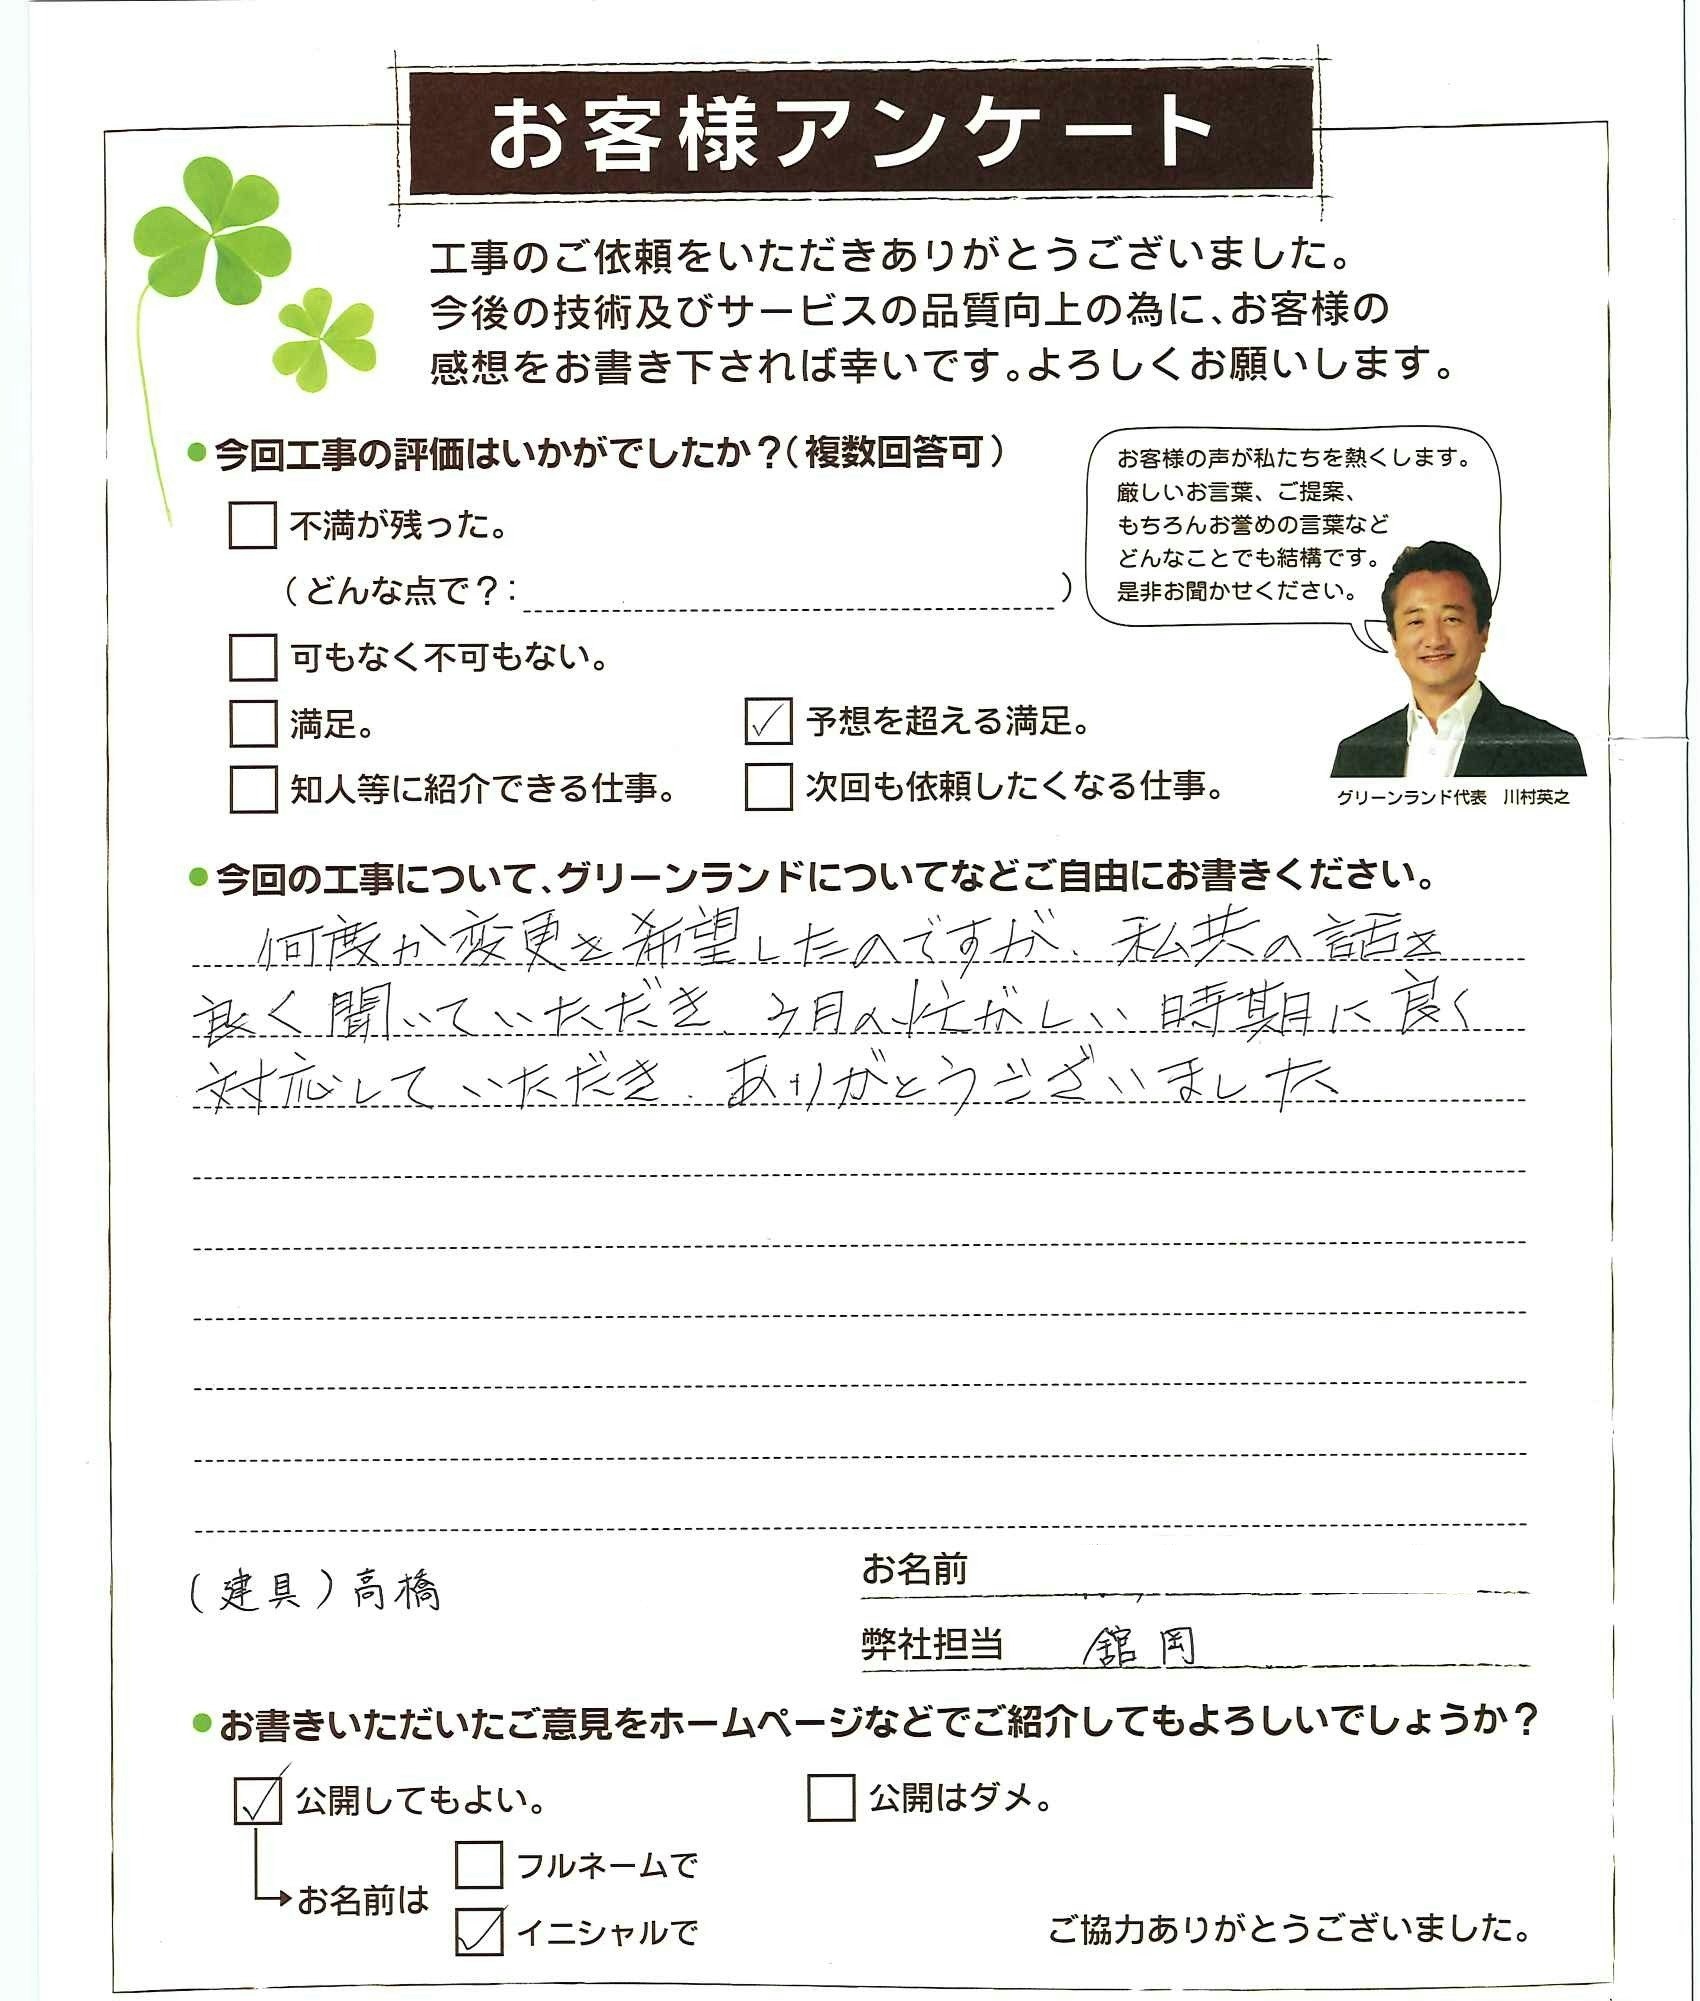 お客様アンケート
工事のご依頼をいただきありがとうございました。
今後の技術及びサービスの品質向上の為に、お客様の
感想をお書き下されば幸いです。よろしくお願いします。
●今回工事の評価はいかがでしたか？（複数回答可）
不満が残った。
（どんな点で？：　）
可もなく不可もない。
満足。
✓ 予想を超える満足。
知人等に紹介できる仕事。
次回も依頼したくなる仕事。
お客様の声が私たちを熱くします。
厳しいお言葉、ご提案、
もちろんお誉めの言葉など
どんなことでも結構です。
是非お聞かせください。
グリーンランド代表　川村英之
●今回の工事について、グリーンランドについてなどご自由にお書きください。
何度か変更を希望したのですが、私共の話を
良く聞いていただき、3月の忙がしい時期に良く
対応していただき、ありがとうございました
（建具）高橋
お名前
弊社担当　舘岡
●お書きいただいたご意見をホームページなどでご紹介してもよろしいでしょうか？
✓ 公開してもよい。
公開はダメ。
お名前は
フルネームで
✓ イニシャルで
ご協力ありがとうございました。